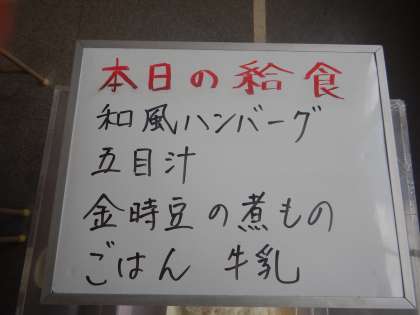 本日の給食
和風ハンバーグ
五目汁
金時豆の煮もの
ごはん 牛乳